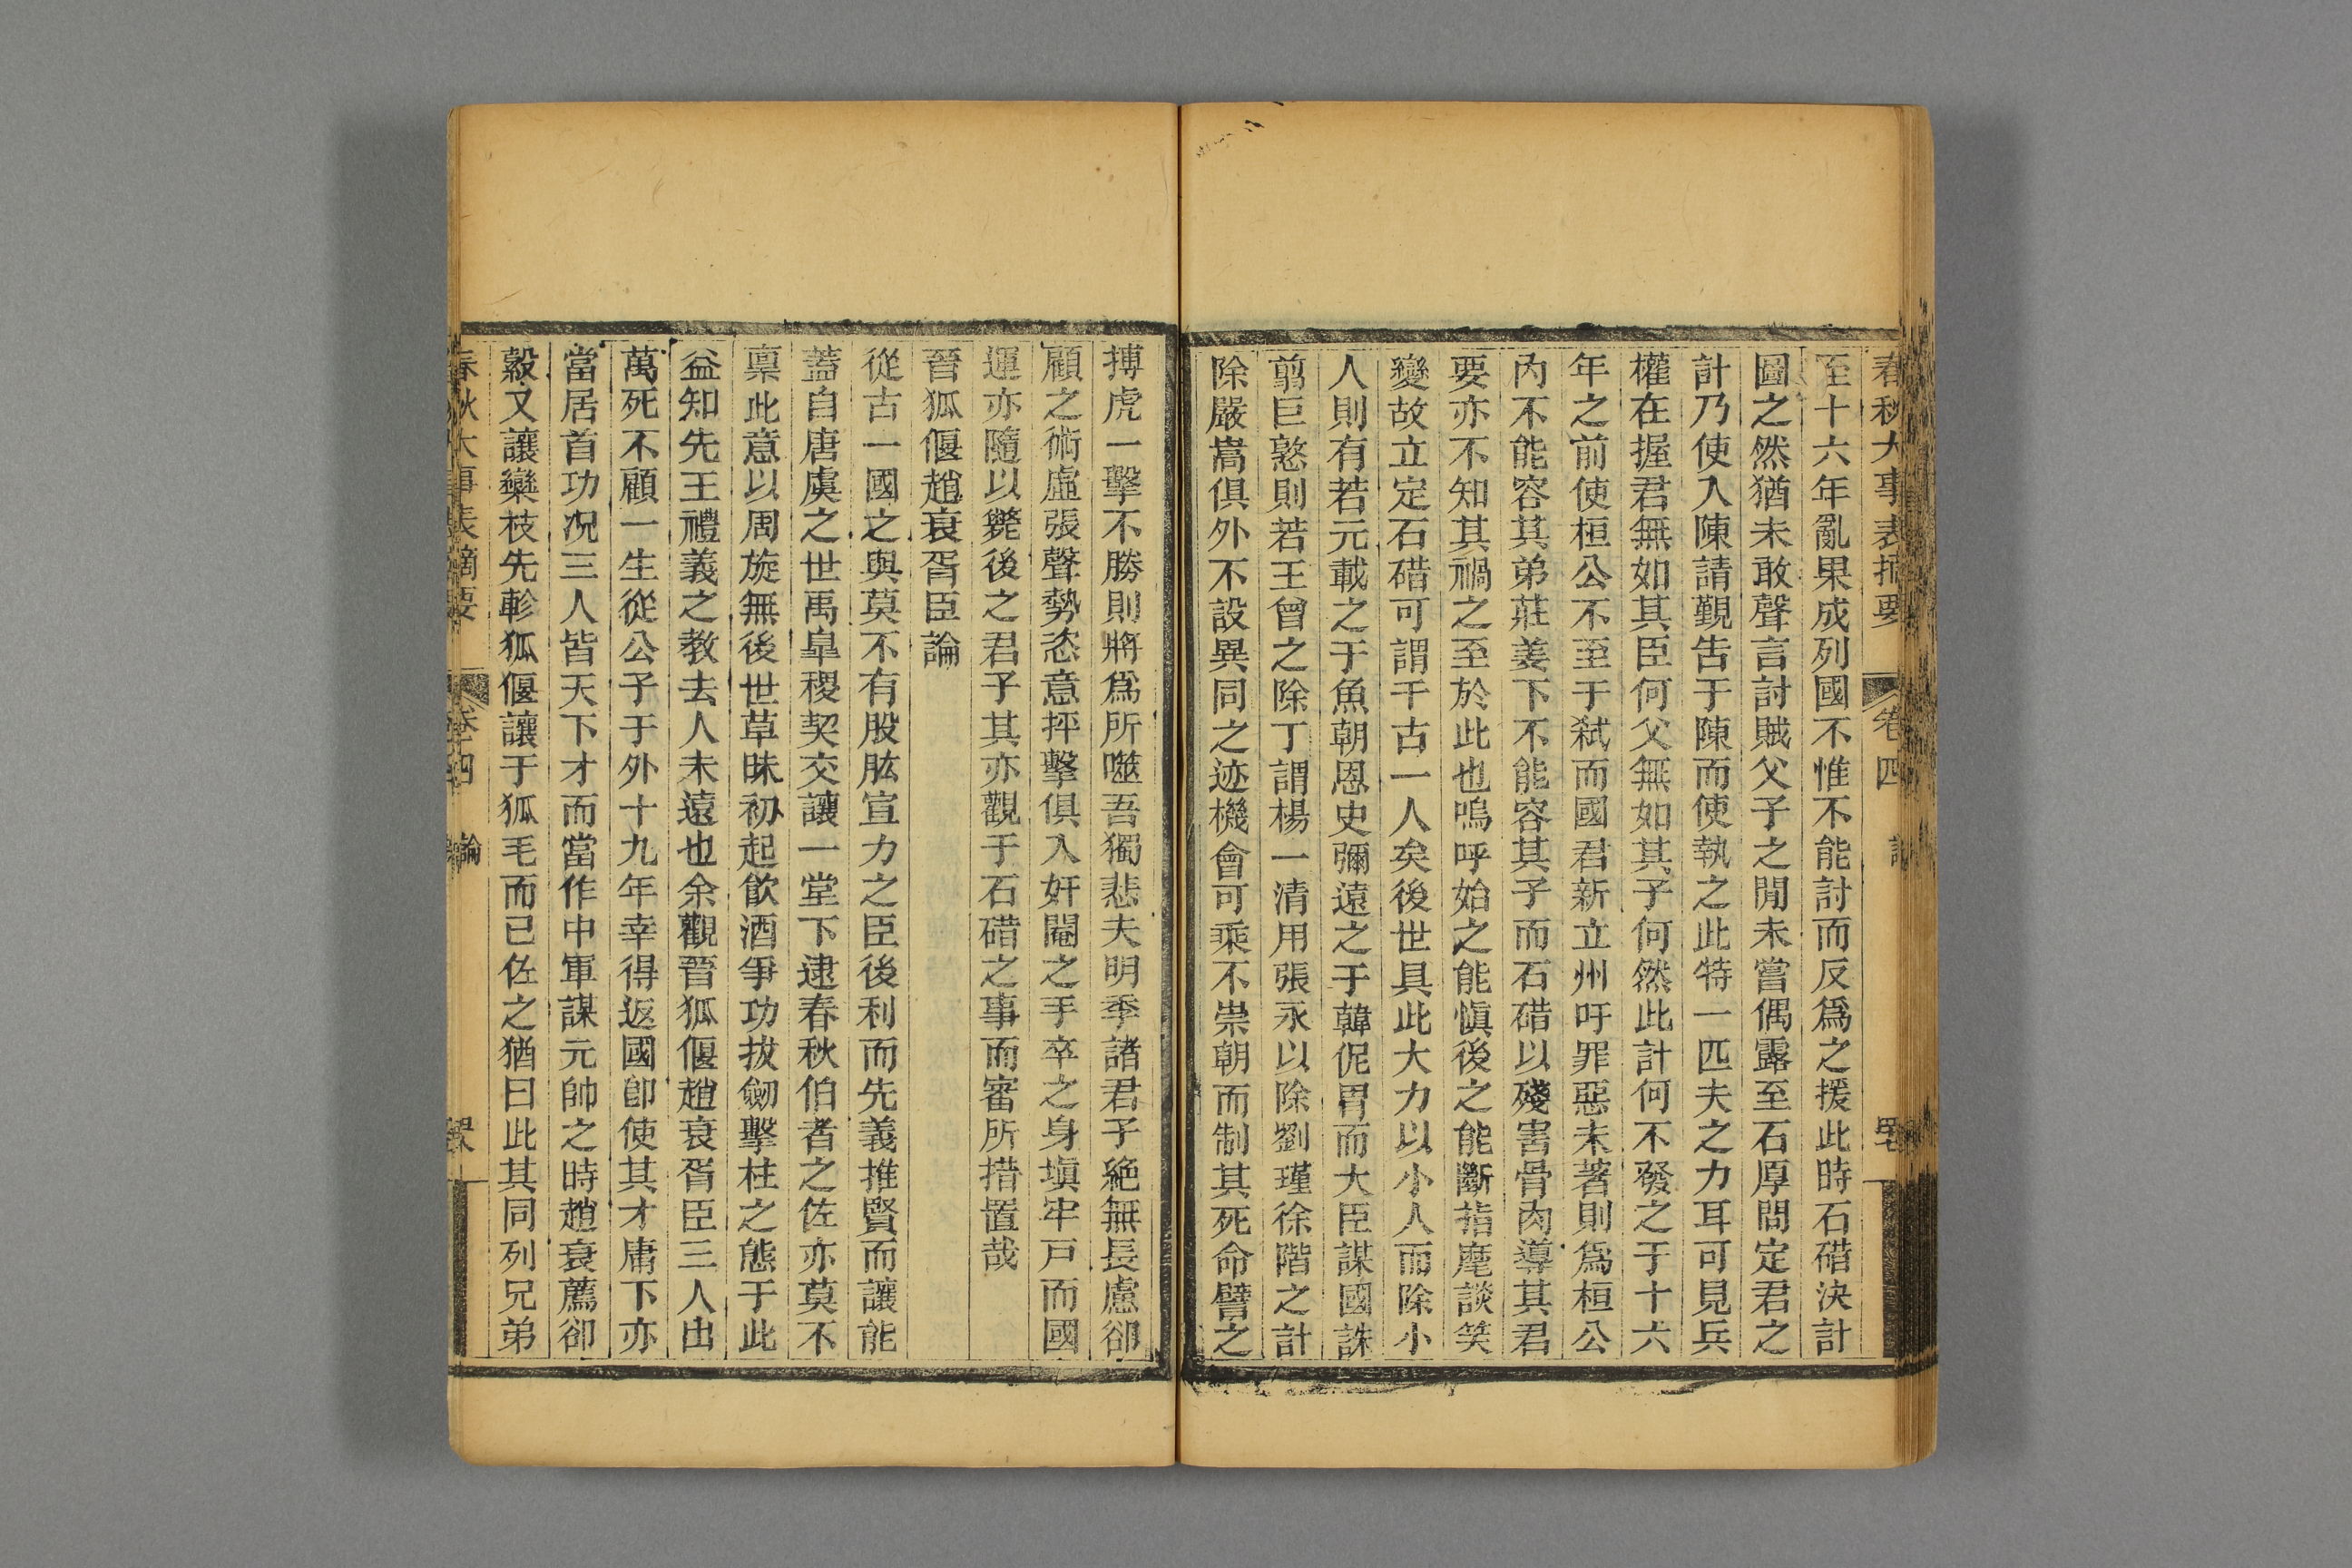 春秋大事表摘要 卷四 論
至十六年亂果成列國不惟不能討而反爲之援此時石碏決計
圖之然猶未敢聲言討賊父子之閒未嘗偶露至石厚問定君之
計乃使入陳請覲告于陳而使執之此特一匹夫之力耳可見兵
權在握君無如其臣何父無如其子何然此計何不發之于十六
年之前使桓公不至于弑而國君新立州吁罪惡未著則爲桓公
內不能容其弟莊姜下不能容其子而石碏以殘害骨肉導其君
要亦不知其禍之至於此也嗚呼始之能愼後之能斷指麾談笑
變故立定石碏可謂千古一人矣後世具此大力以小人而除小
人則有若元載之于魚朝恩史彌遠之于韓侂胄而大臣謀國誅
翦巨憝則若王曾之除丁謂楊一清用張永以除劉瑾徐階之計
除嚴嵩俱外不設異同之迹機會可乘不崇朝而制其死命譬之
搏虎一擊不勝則將爲所噬吾獨悲夫明季諸君子絶無長慮卻
顧之術虛張聲勢恣意抨擊俱入奸閹之手卒之身塡牢戸而國
運亦隨以斃後之君子其亦觀于石碏之事而審所措置哉
晉狐偃趙衰胥臣論
從古一國之興莫不有股肱宣力之臣後利而先義推賢而讓能
蓋自唐虞之世禹臯稷契交讓一堂下逮春秋伯者之佐亦莫不
稟此意以周旋無後世草昧初起飮酒爭功拔劒擊柱之態于此
益知先王禮義之教去人未遠也余觀晉狐偃趙衰胥臣三人出
萬死不顧一生從公子于外十九年幸得返國卽使其才庸下亦
當居首功况三人皆天下才而當作中軍謀元帥之時趙衰薦郤
縠又讓欒枝先軫狐偃讓于狐毛而已佐之猶曰此其同列兄弟
春秋大事表摘要 卷四 論